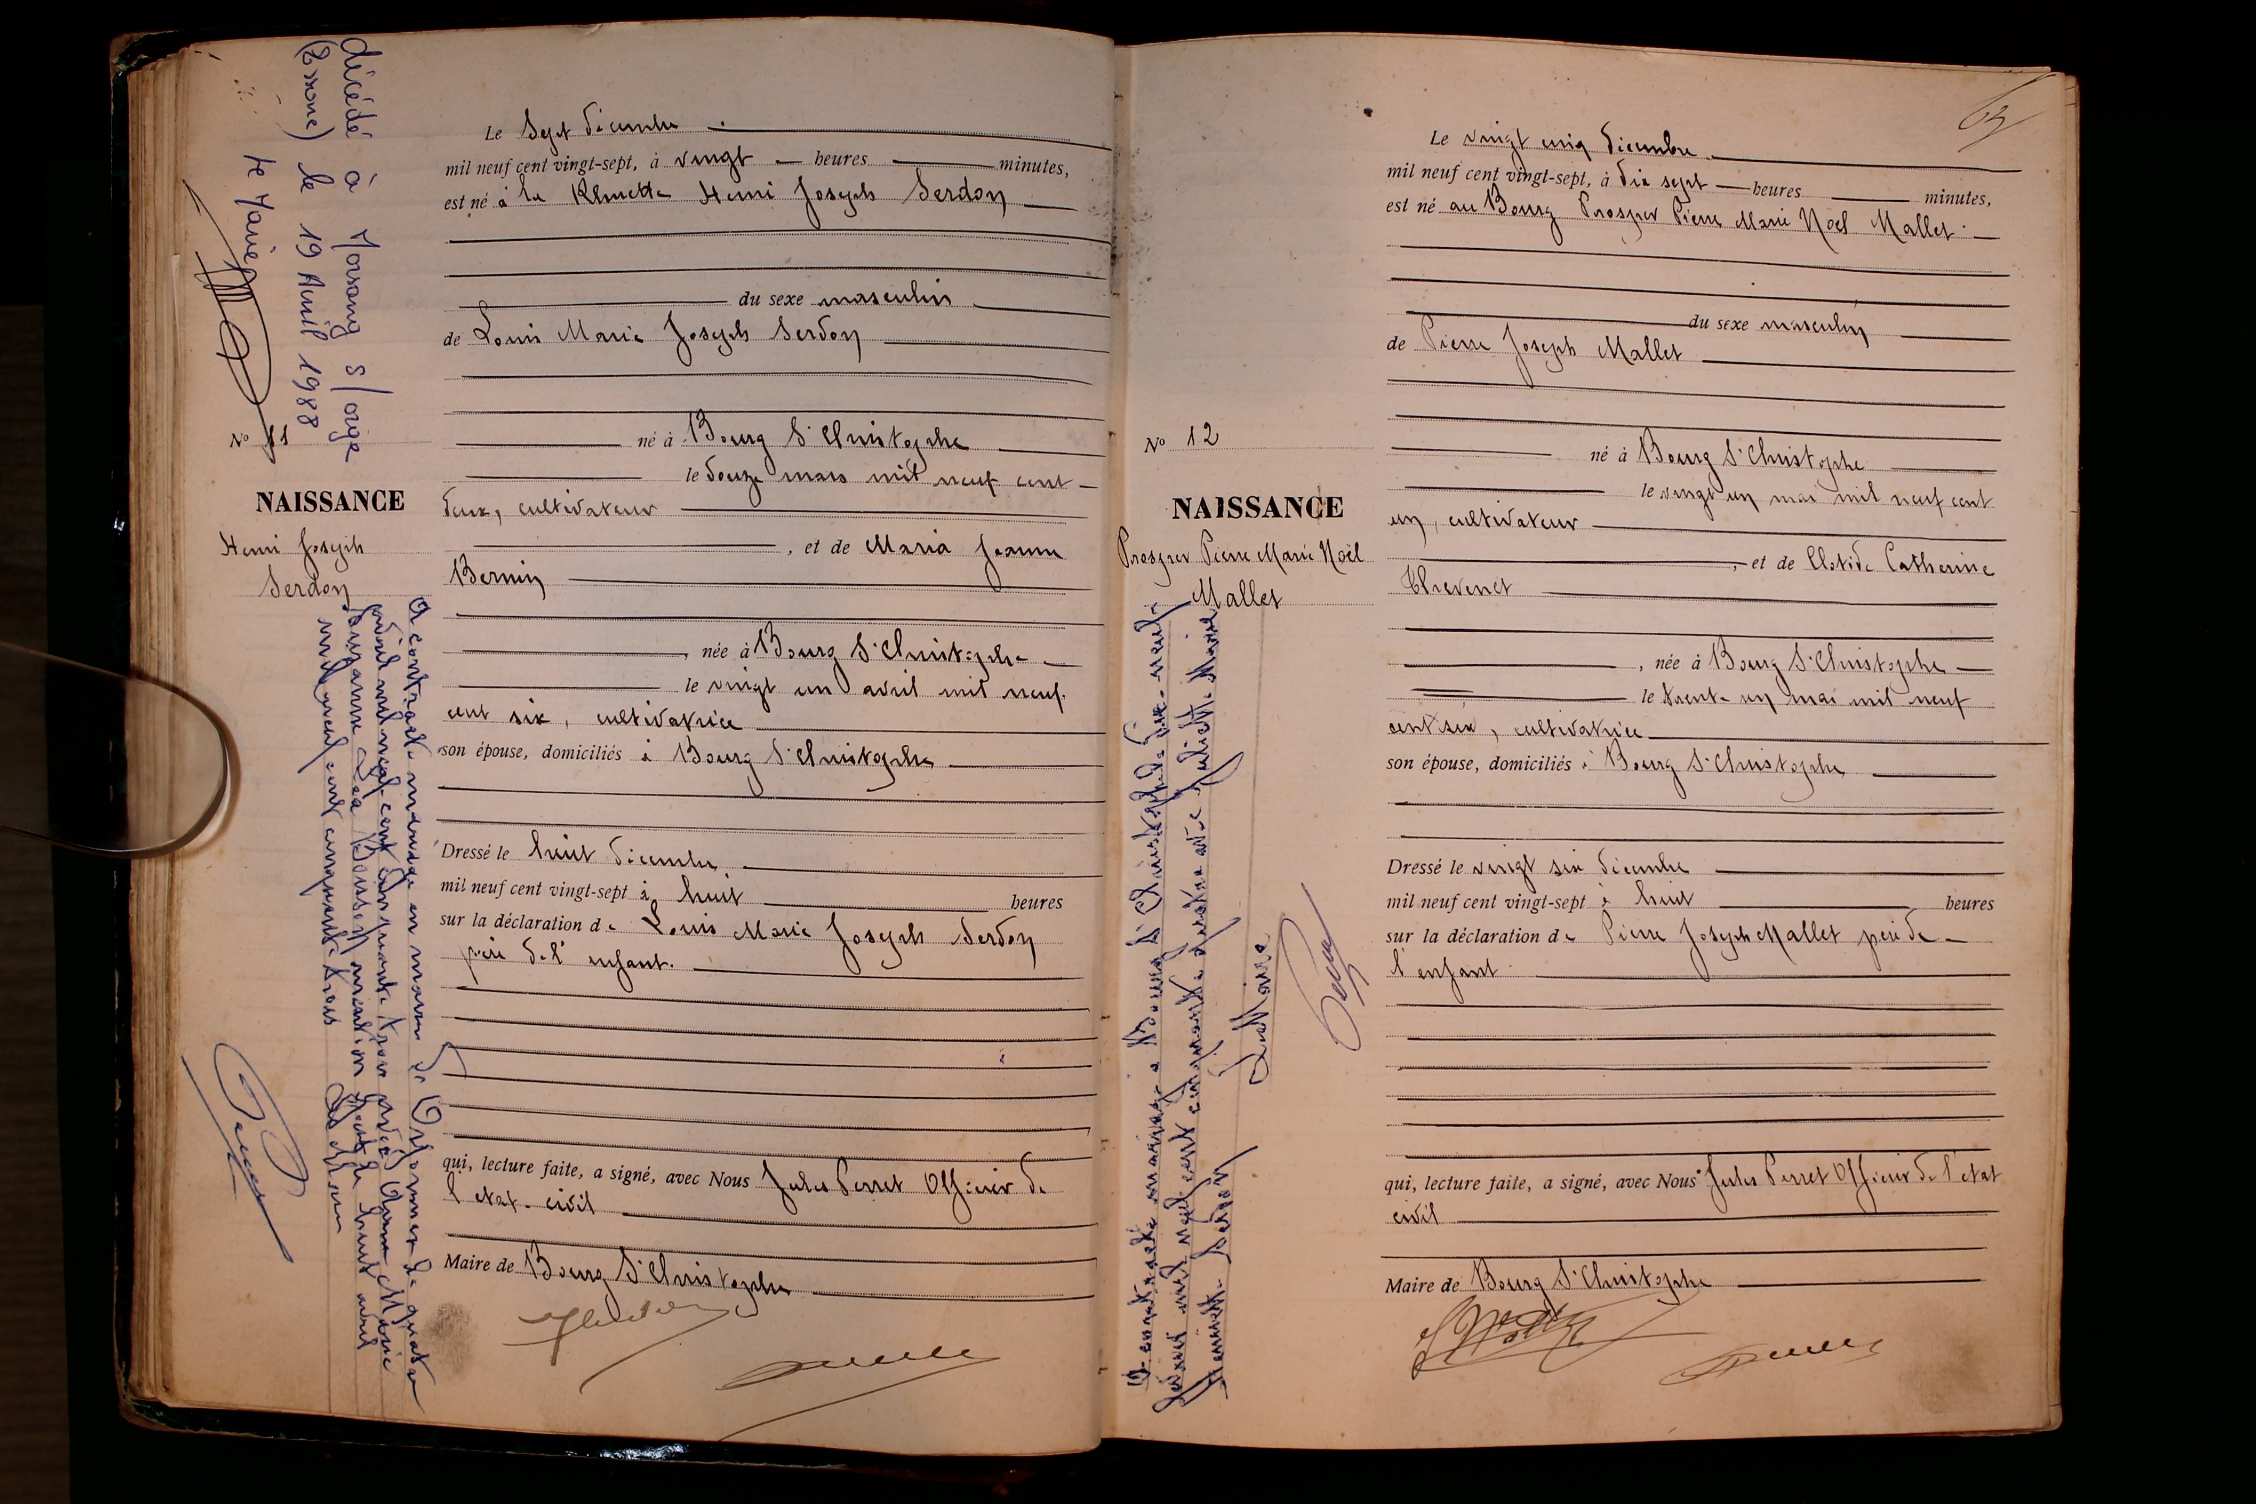 décédé à Morsang s/orge
(Essonne) le 19 Avril 1988
le Maire
N° 11
NAISSANCE
Henri Joseph
Serdon
a contracté mariage en mairie de
quatre
avril mil neuf cent cinquante trois avec Marie
mention faite le huit avril
mil neuf cent cinquante trois
Le Sept décembre
mil neuf cent vingt-sept, à vingt heures minutes,
est né à la Henri Joseph Serdon
du sexe masculin
de Louis Marie Joseph Serdon
né à Bourg St Christophe
le douze mars mil neuf cent
deux, cultivateur
, et de Maria Jeanne
Bernin
, née à Bourg St Christophe
le vingt un avril mil neuf
cent six, cultivatrice
son épouse, domiciliés à Bourg St Christophe
Dressé le huit décembre
mil neuf cent vingt-sept à huit heures
sur la déclaration de Louis Marie Joseph Serdon
père de l'enfant.
qui, lecture faite, a signé, avec Nous Jules Perret Officier de
l'etat civil
Maire de Bourg St Christophe
N° 12
NAISSANCE
Prosper Pierre Marie Noël
Mallet
A contracté mariage à Bourg St Christophe le dix-neuf
février mil neuf cent cinquante avec Juliette Marie
Henriette Serdon
Le Maire
Perret
63
Le vingt cinq décembre
mil neuf cent vingt-sept, à dix sept heures minutes,
est né au Bourg Prosper Pierre Marie Noël Mallet
du sexe masculin
de Pierre Joseph Mallet
né à Bourg St Christophe
le vingt un mai mil neuf cent
un, cultivateur
, et de Clotide Catherine
Thevenet
, née à Bourg St Christophe
le trente un mai mil neuf
cent six, cultivatrice
son épouse, domiciliés à Bourg St Christophe
Dressé le vingt six décembre
mil neuf cent vingt-sept à huit heures
sur la déclaration de Pierre Joseph Mallet père de
l'enfant
qui, lecture faite, a signé, avec Nous Jules Perret Officier de l'etat
civil
Maire de Bourg St Christophe